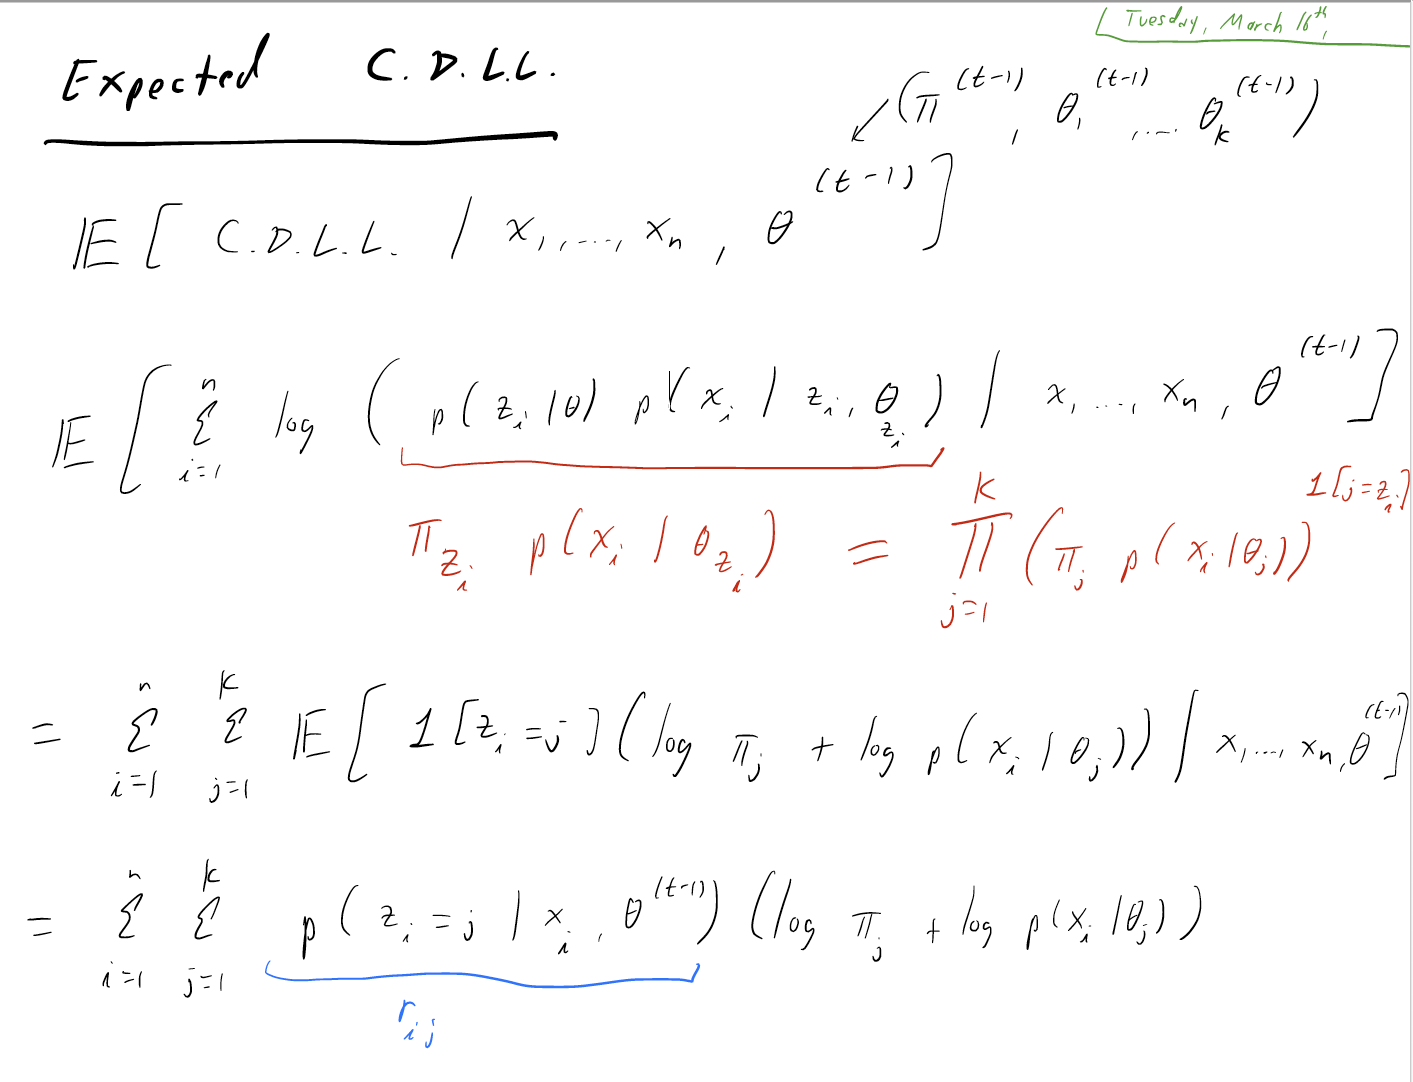 Tuesday, March 16th,
Expected C.D.L.L.
(π^(t-1), θ_1^(t-1), ... θ_k^(t-1))
𝔼[ C.D.L.L. | x_1, ..., x_n, θ^(t-1) ]
𝔼[ Σ_{i=1}^{n} log ( p(z_i|θ) p(x_i | z_i, θ_{z_i}) | x_1, ..., x_n, θ^(t-1) ]
π_{z_i} p(x_i | θ_{z_i}) = Π_{j=1}^{K} (π_j p(x_i|θ_j))^{1[j=z_i]}
= Σ_{i=1}^{n} Σ_{j=1}^{k} 𝔼[ 1[z_i=j] (log π_j + log p(x_i | θ_j)) | x_1, ..., x_n, θ^(t-1) ]
= Σ_{i=1}^{n} Σ_{j=1}^{k} p(z_i = j | x_i, θ^(t-1)) (log π_j + log p(x_i | θ_j))
r_{ij}